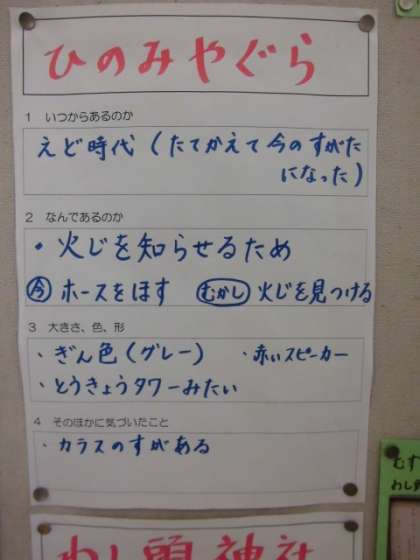 ひのみやぐら
1 いつからあるのか
えど時代(たてかえて今のすがた
になった)
2 なんであるのか
・火じを知らせるため
今 ホースをほす むかし 火じを見つける
3 大きさ、色、形
・ぎん色(グレー) ・赤いスピーカー
・とうきょうタワーみたい
4 そのほかに気づいたこと
・カラスのすがある
むす
わし頭
わし頭神社